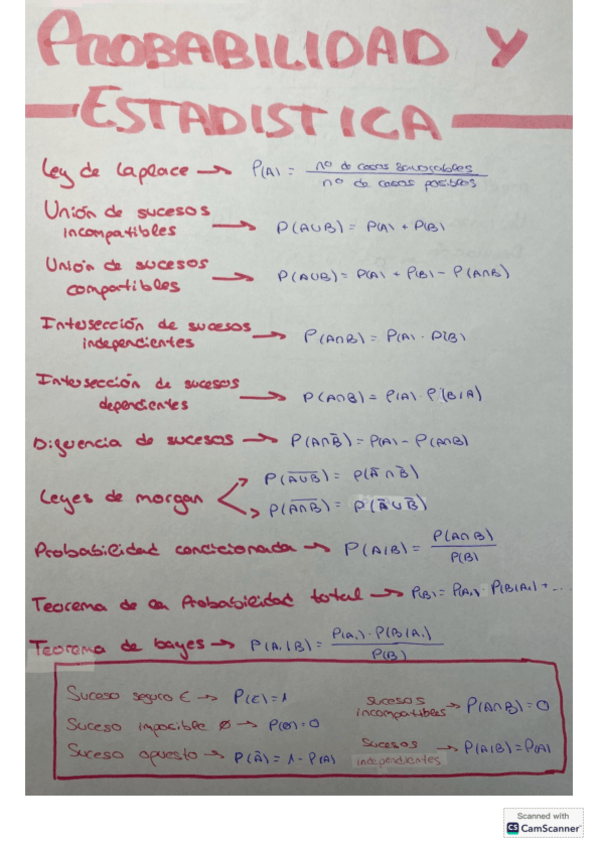 PROBABILIDAD Y
ESTADISTICA
Ley de Laplace → P(A) = nº de casos favorables / nº de casos posibles
Unión de sucesos incompatibles → P(A∪B) = P(A) + P(B)
Unión de sucesos compatibles → P(A∪B) = P(A) + P(B) - P(A∩B)
Intersección de sucesos independientes → P(A∩B) = P(A) · P(B)
Intersección de sucesos dependientes → P(A∩B) = P(A) · P(B/A)
Diferencia de sucesos → P(A∩B̄) = P(A) - P(A∩B)
Leyes de morgan
P(A̅U̅B̅) = P(Ā∩B̄)
P(A̅∩̅B̅) = P(Ā∪B̄)
Probabilidad condicionada → P(A/B) = P(A∩B) / P(B)
Teorema de la Probabilidad total → P(B) = P(A₁) · P(B/A₁) + ...
Teorema de bayes → P(A₁/B) = P(A₁) · P(B/A₁) / P(B)
Suceso seguro E → P(E) = 1
Suceso imposible ∅ → P(∅) = 0
Suceso opuesto → P(Ā) = 1 - P(A)
sucesos incompatibles → P(A∩B) = 0
sucesos independientes → P(A/B) = P(A)
Scanned with
CS CamScanner